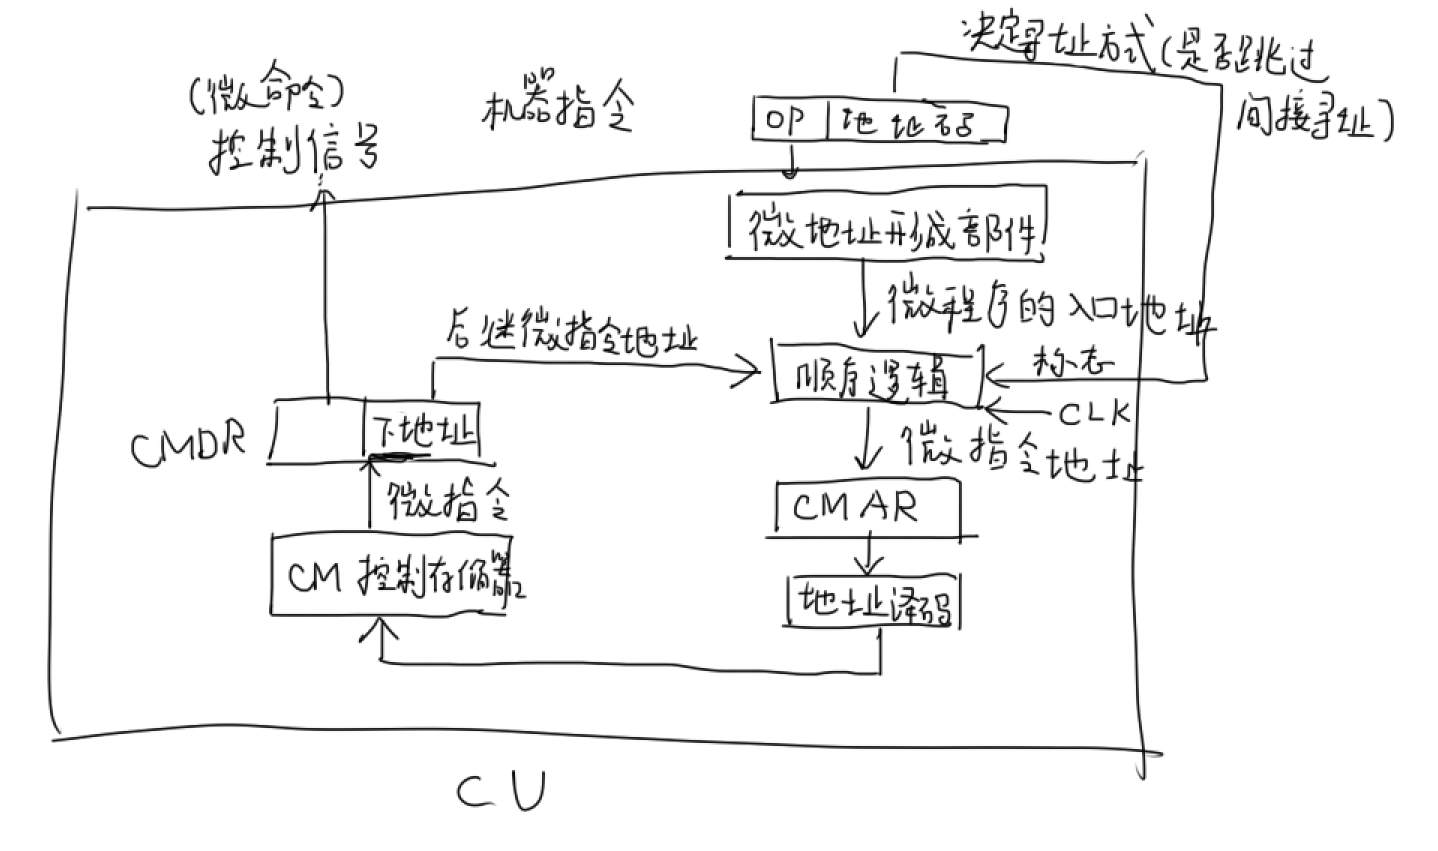 决定寻址方式(是否跳过
间接寻址)
(微命令)
控制信号
机器指令
OP 地址码
微地址形成部件
微程序的入口地址
后继微指令地址
顺序逻辑
标志
CLK
CMDR
下地址
微指令地址
微指令
CMAR
CM 控制存储器
地址译码
CU